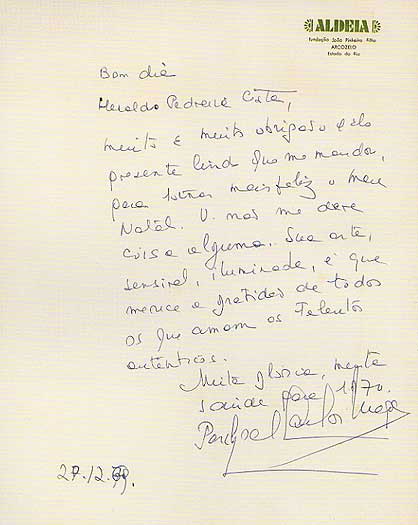 ALDEIA
Fundação João Pinheiro Filho
ARCOZELO
Estado do Rio
Bom dia
Heraldo Pedreira
muito e muito obrigado pelo
presente lindo que me mandou,
para tornar mais feliz o meu
Natal. V. não me deve
coisa alguma. Sua arte,
sensivel, iluminada, é que
merece a gratidão de todos
os que amam os Talentos
autenticos.
Muita gloria, muita
saúde para 1970.
Paschoal Carlos Magno
27.12.69.